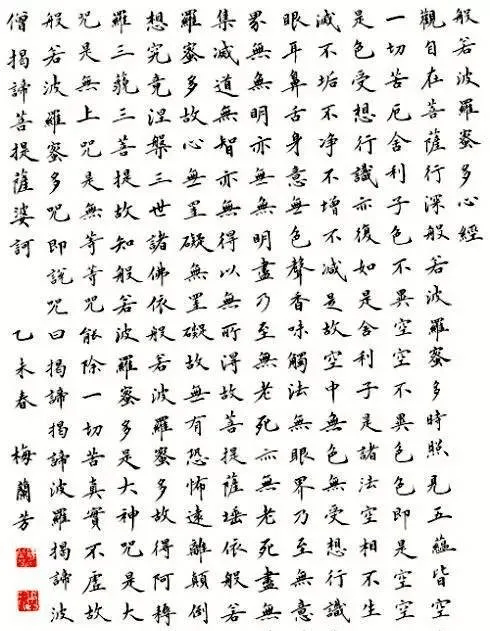 般若波羅蜜多心經
觀自在菩薩行深般若波羅蜜多時照見五蘊皆空
一切苦厄舍利子色不異空空不異色色即是空空
是色受想行識亦復如是舍利子是諸法空相不生
滅不垢不淨不增不減是故空中無色無受想行識
眼耳鼻舌身意無色聲香味觸法無眼界乃至無意
界無無明亦無無明盡乃至無老死亦無老死盡無
集滅道無智亦無得以無所得故菩提薩埵依般若
羅蜜多故心無罣礙無罣礙故無有恐怖遠離顛倒
想究竟涅槃三世諸佛依般若波羅蜜多故得阿耨
羅三藐三菩提故知般若波羅蜜多是大神咒是大
咒是無上咒是無等等咒能除一切苦真實不虛故
般若波羅蜜多咒即說咒曰揭諦揭諦波羅揭諦波
僧揭諦菩提薩婆訶 乙未春 梅蘭芳